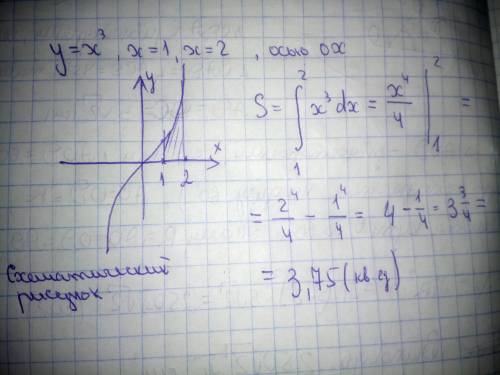 y = x³, x=1, x=2, осью ox
y
x
1 2
S = ∫₁² x³dx = x⁴/4 |₁² =
= 2⁴/4 - 1⁴/4 = 4 - 1/4 = 3 3/4 =
= 3,75 (кв ед)
Схематический
рисунок